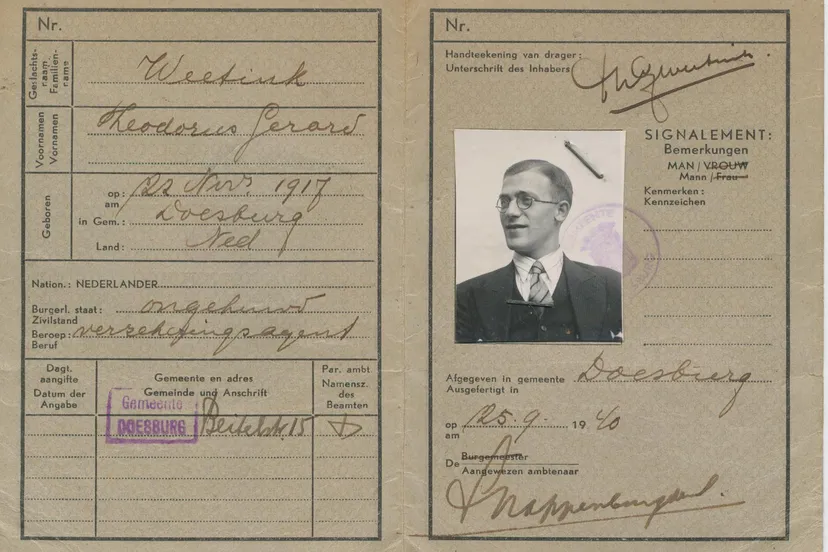 Nr.
Geslachts-
naam
Familien-
name
Weetink
Voornamen
Vornamen
Theodorus Gerard
Geboren
op: 22 Nov. 1917
am
in Gem.: Doesburg
Land: Ned
Nation.: NEDERLANDER
Burgerl. staat: ongehuwd
Zivilstand
Beroep: verzekeringsagent
Beruf
Dagt.
aangifte
Datum der
Angabe
Gemeente en adres
Gemeinde und Anschrift
Par. ambt.
Namensz.
des
Beamten
Gemeente
DOESBURG
15
Nr.
Handteekening van drager:
Unterschrift des Inhabers
SIGNALEMENT:
Bemerkungen
MAN / VROUW
Mann / Frau
Kenmerken:
Kennzeichen
GEMEENTE
Afgegeven in gemeente Doesburg
Ausgefertigt in
op 25.9. 1940
am
De Burgemeester
Aangewezen ambtenaar